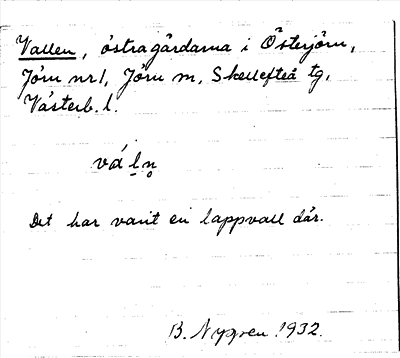 Vallen, östragårdarna i Österjörn,
Jörn nr 1, Jörn sn, Skellefteå tg,
Västerb. l.
vál̠n̥
Det har varit en lappvall där.
B. Nygren 1932.